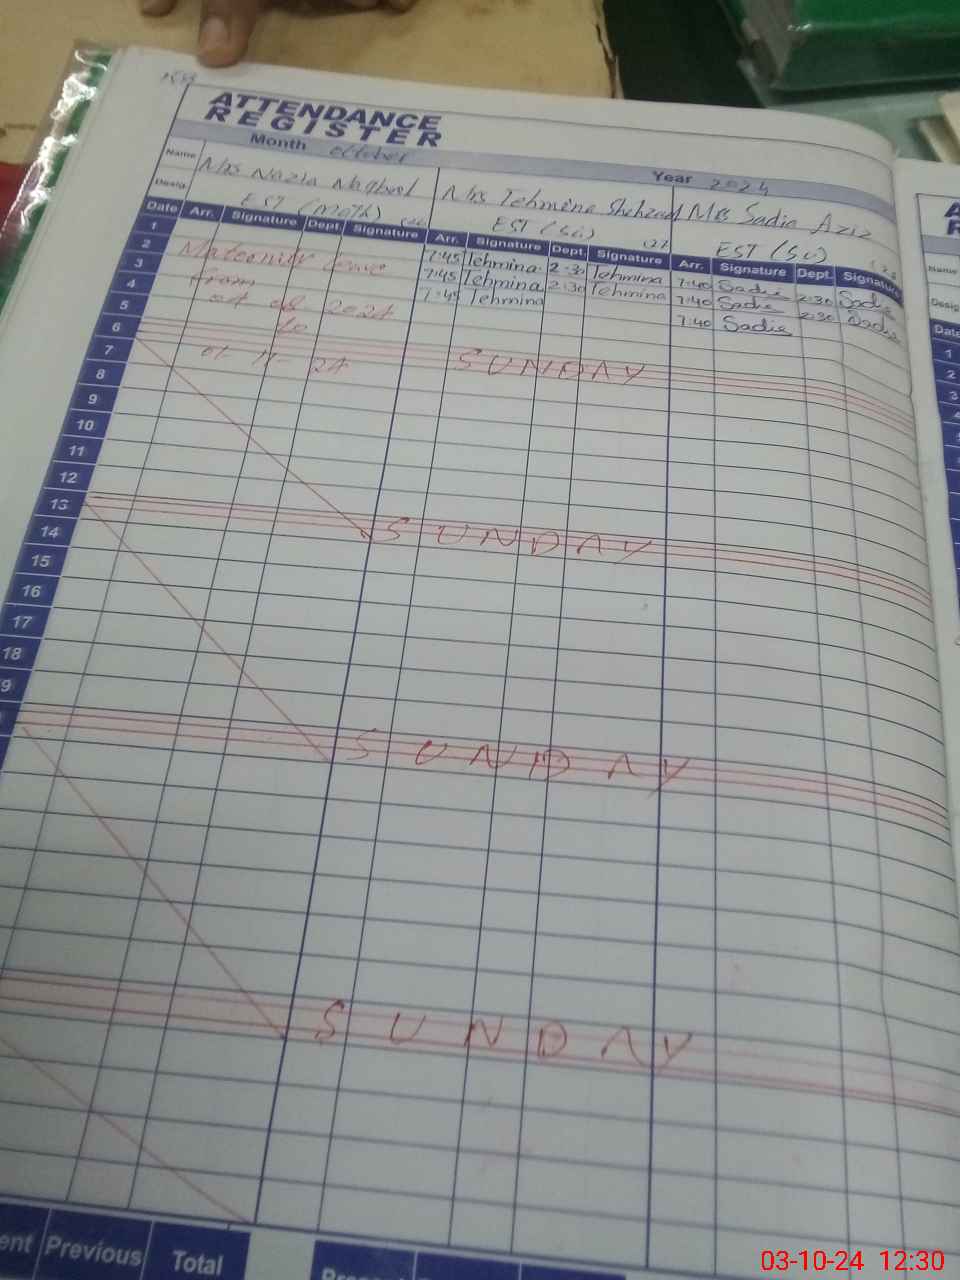 ATTENDANCE
REGISTER
Month October Year 2024
Name Mrs Nazia Maqbool Mrs Tehmina Shehzad Mrs Sadia Aziz
Desig. EST (Math) EST (Sci) EST (Sc)
Date Arr. Signature Dept. Signature Arr. Signature Dept. Signature Arr. Signature Dept. Signature
1 7:45 Tehmina 2:30 Tehmina 7:40 Sadia 2:30 Sadia
2 Maternity leave 7:45 Tehmina 2:30 Tehmina 7:40 Sadia 2:30 Sadia
3 from 7:45 Tehmina 7:40 Sadia
4 04 08 2024
5 to
6 01-11-24 SUNDAY
7
8
9
10
11
12
13 SUNDAY
14
15
16
17
18
9
SUNDAY
SUNDAY
ent Previous Total
Name
Desig
Date
1
2
3
4
03-10-24 12:30